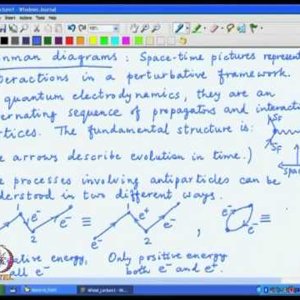 nman diagrams : Space-time pictures represent
eractions in a perturbative framework.
quantum electrodynamics, they are an
ernating sequence of propagators and interaction
rtices. The fundamental structure is:
e arrows describe evolution in time.)
e processes involving antiparticles can be
derstood in two different ways.
S_F
S_F
space
1 e⁻ 2 e⁻ ≡ 1 e⁺ 2 e⁻ , e⁻ e⁻ ≡
ative energy, Only positive energy
all e⁻ both e⁻ and e⁺.